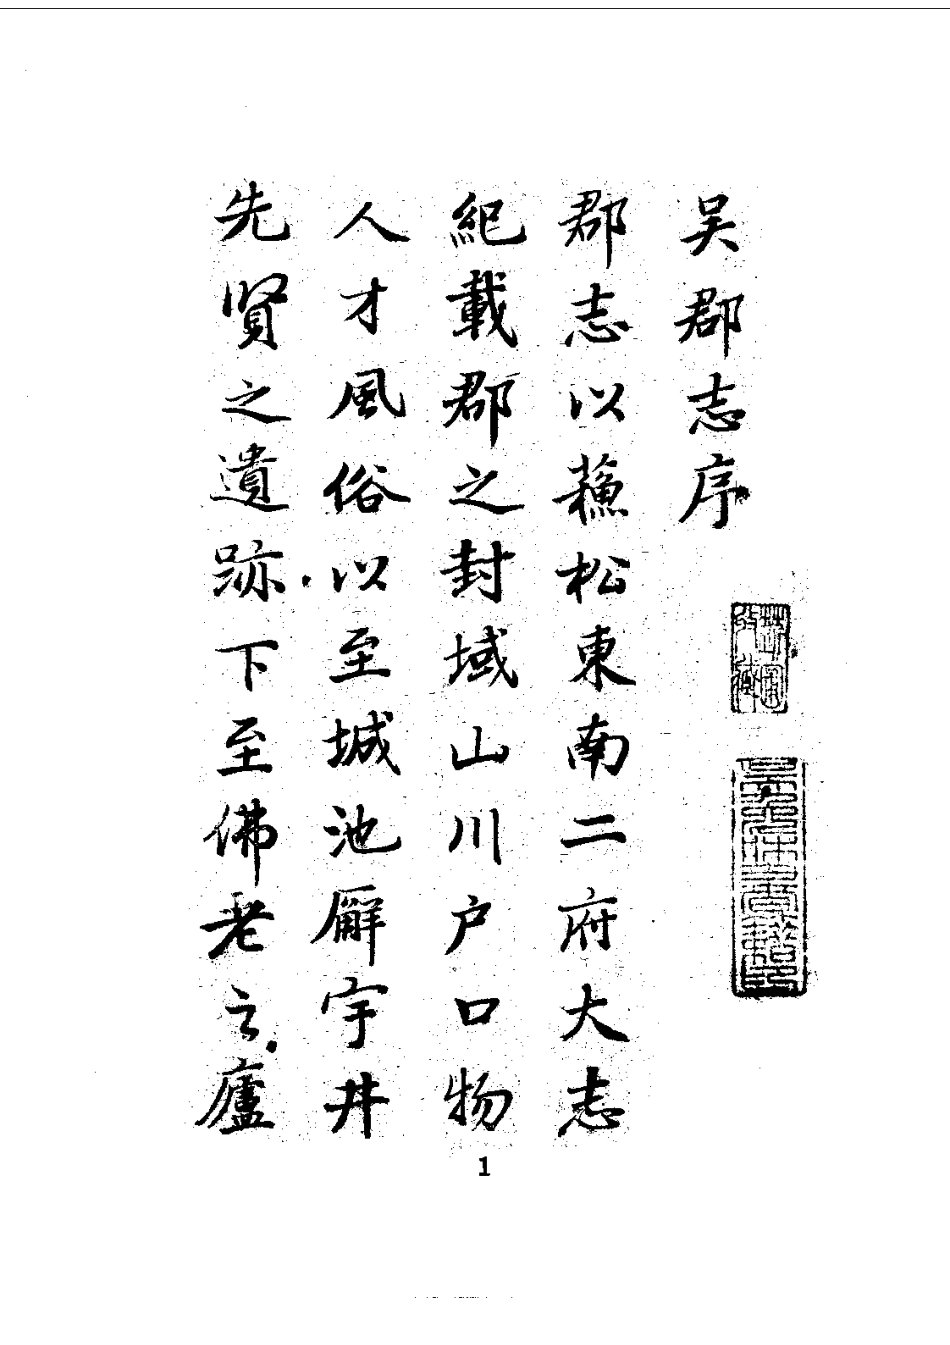 吴郡志序
郡志以蘓松東南二府大志
紀載郡之封域山川户口物
人才風俗以至城池廨宇井
先賢之遺跡下至佛老之廬
1